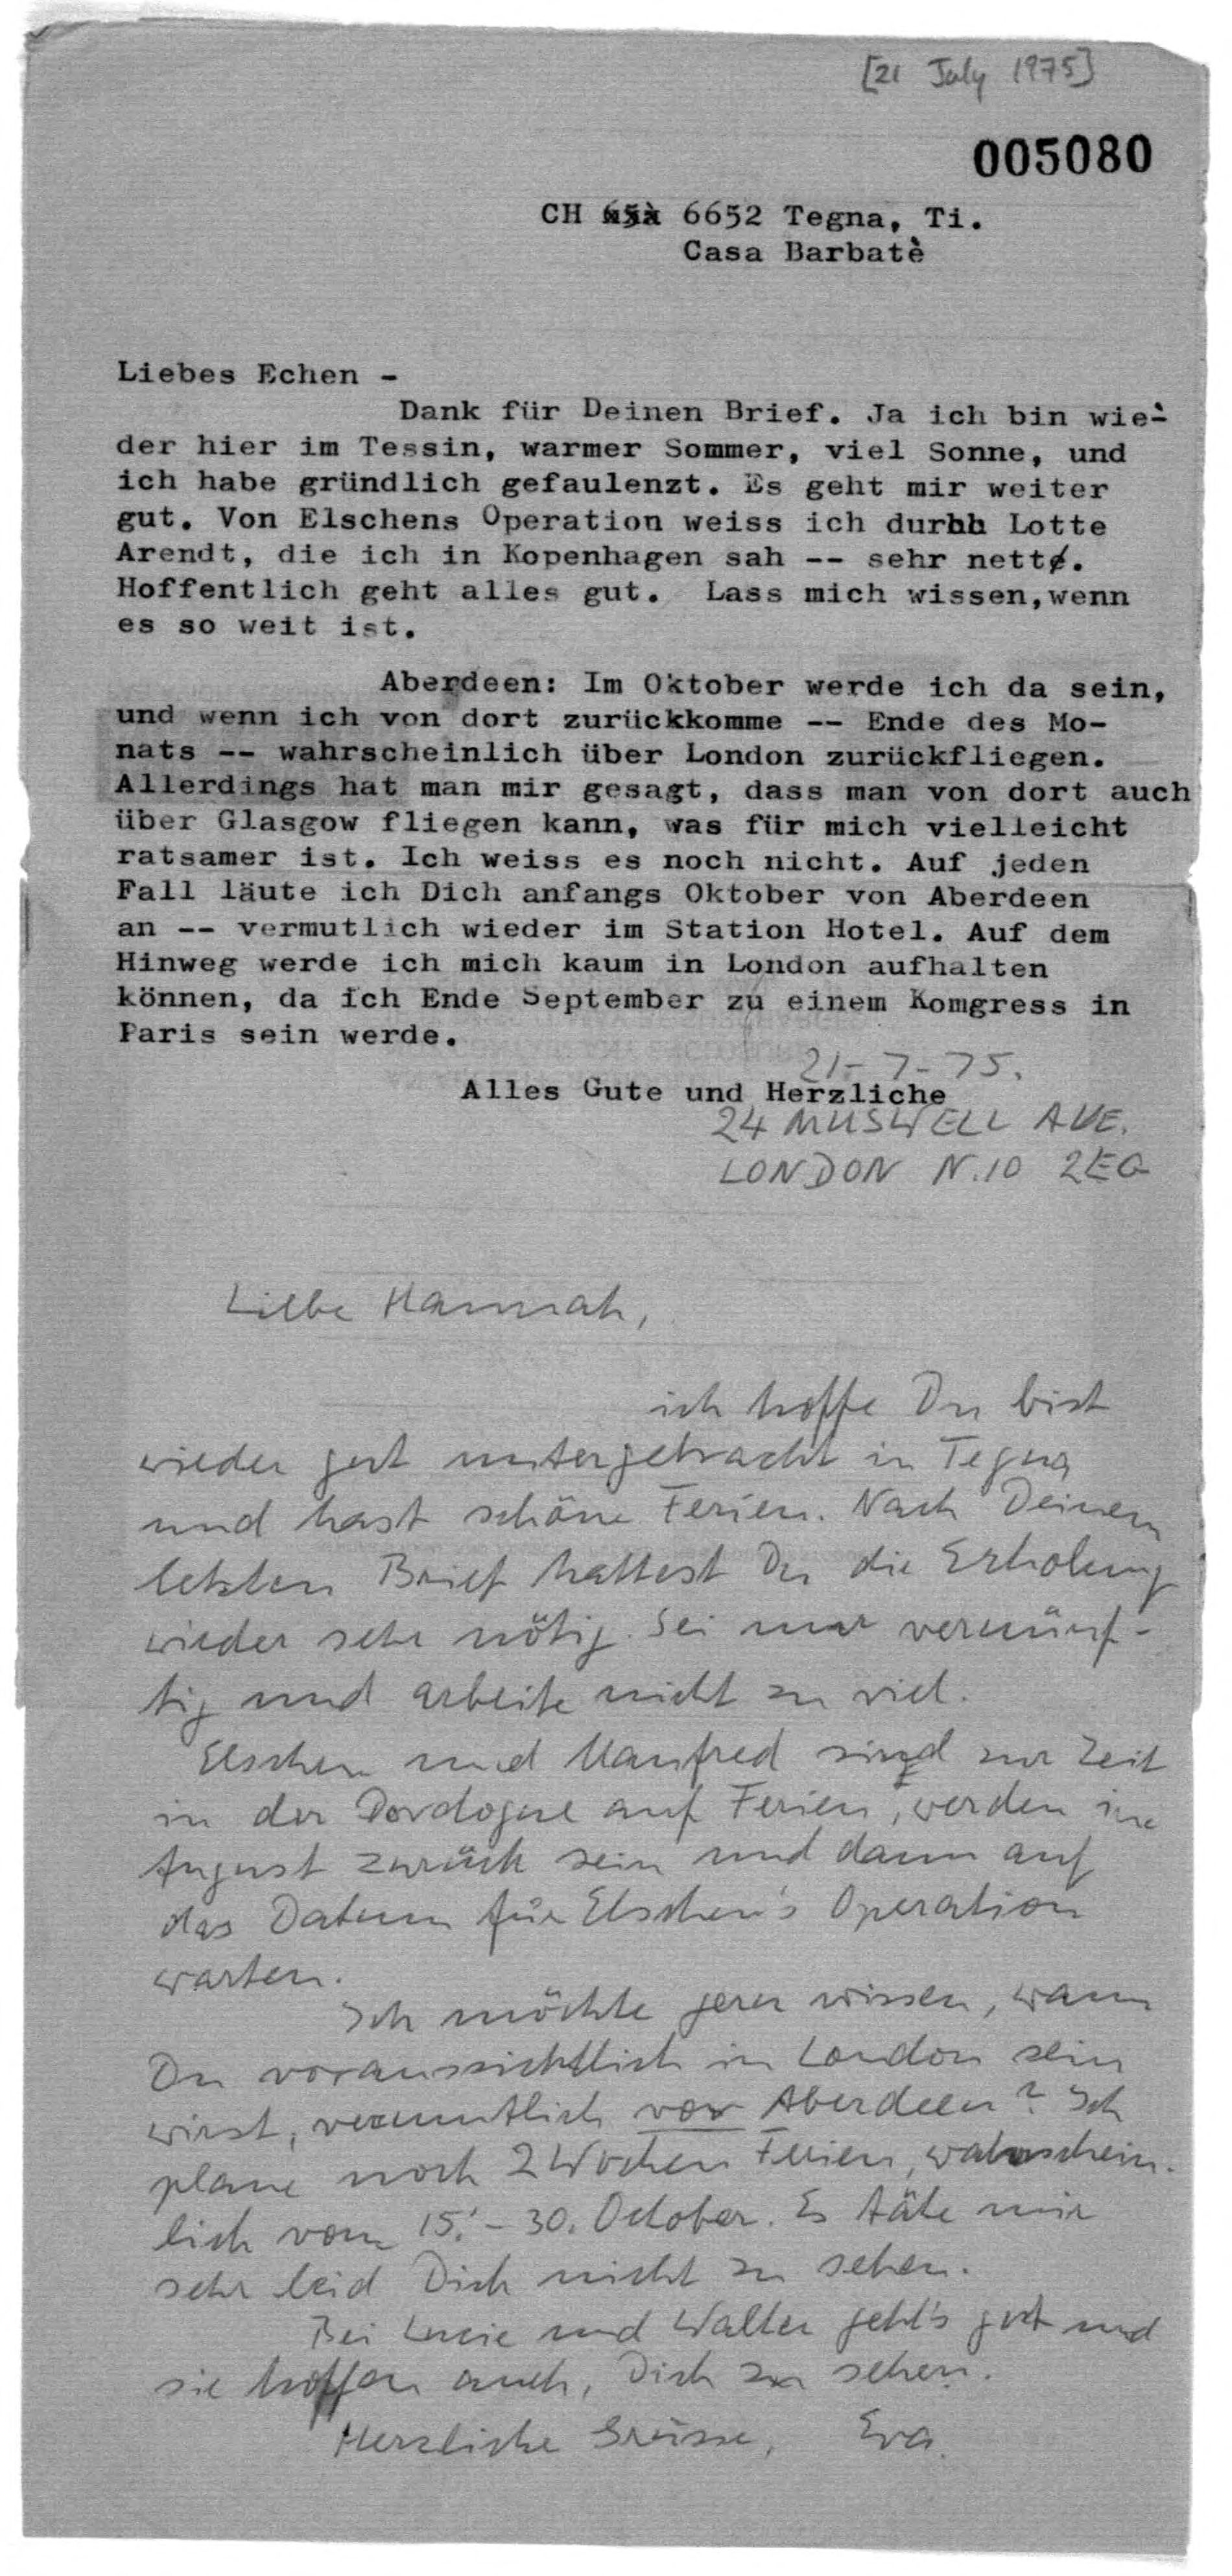 [21 July 1975]
005080
CH 6652 Tegna, Ti.
Casa Barbatè
Liebes Echen -
Dank für Deinen Brief. Ja ich bin wie-
der hier im Tessin, warmer Sommer, viel Sonne, und
ich habe gründlich gefaulenzt. Es geht mir weiter
gut. Von Elschens Operation weiss ich durhh Lotte
Arendt, die ich in Kopenhagen sah -- sehr nett.
Hoffentlich geht alles gut. Lass mich wissen,wenn
es so weit ist.
Aberdeen: Im Oktober werde ich da sein,
und wenn ich von dort zurückkomme -- Ende des Mo-
nats -- wahrscheinlich über London zurückfliegen.
Allerdings hat man mir gesagt, dass man von dort auch
über Glasgow fliegen kann, was für mich vielleicht
ratsamer ist. Ich weiss es noch nicht. Auf jeden
Fall läute ich Dich anfangs Oktober von Aberdeen
an -- vermutlich wieder im Station Hotel. Auf dem
Hinweg werde ich mich kaum in London aufhalten
können, da ich Ende September zu einem Komgress in
Paris sein werde.
21-7-75.
Alles Gute und Herzliche
24 MUSWELL AVE.
LONDON N.10 2EG
Liebe Hannah,
ich hoffe Du bist
wieder gut untergebracht in Tegna
und hast schöne Ferien. Nach Deinem
letzten Brief hattest Du die Erholung
wieder sehr nötig. Sei nur vernünf-
tig und arbeite nicht zu viel.
Elschen und Manfred sind zur Zeit
in der Dordogne auf Ferien, werden im
August zurück sein und dann auf
das Datum für Elschen's Operation
warten.
Ich möchte gern wissen, wann
Du voraussichtlich in London sein
wirst, vermutlich vor Aberdeen? Ich
plane noch 2 Wochen Ferien, wahrschein-
lich vom 15.-30. October. Es täte mir
sehr leid Dich nicht zu sehen.
Bei Lucie und Walter geht's gut und
sie hoffen auch, Dich zu sehen.
Herzliche Grüsse, Eva.